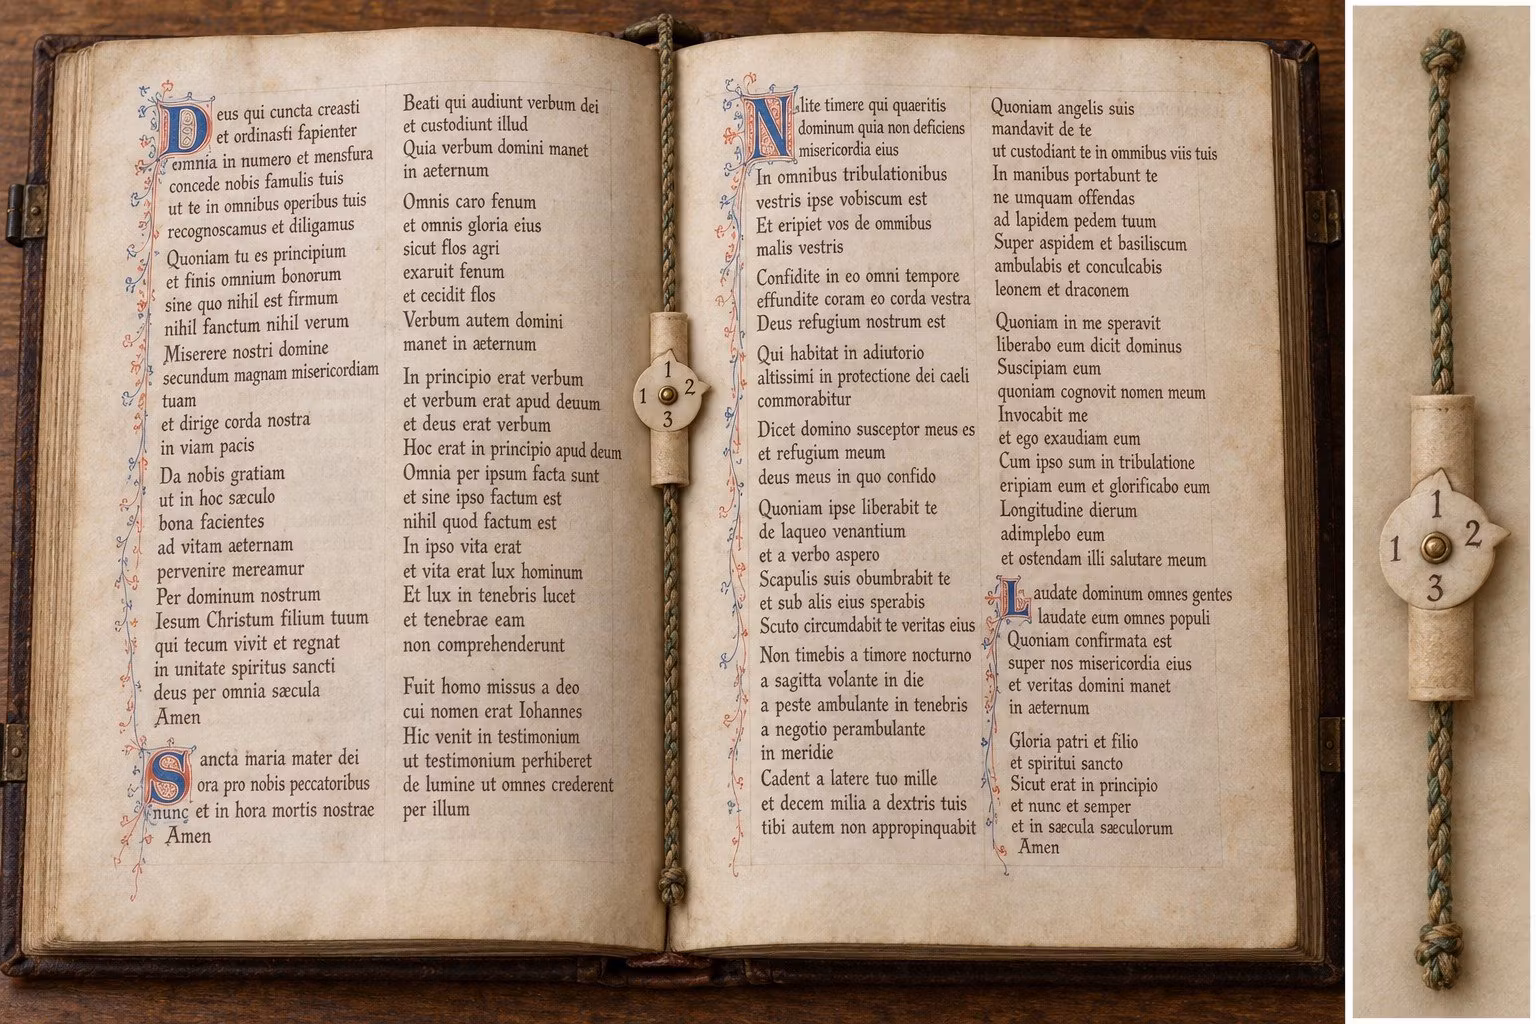 Deus qui cuncta creasti
et ordinasti fapienter
omnia in numero et menfura
concede nobis famulis tuis
ut te in omnibus operibus tuis
recognoscamus et diligamus
Quoniam tu es principium
et finis omnium bonorum
sine quo nihil est firmum
nihil fanctum nihil verum
Miserere nostri domine
secundum magnam misericordiam
tuam
et dirige corda nostra
in viam pacis
Da nobis gratiam
ut in hoc sæculo
bona facientes
ad vitam aeternam
pervenire mereamur
Per dominum nostrum
Iesum Christum filium tuum
qui tecum vivit et regnat
in unitate spiritus sancti
deus per omnia sæcula
Amen
Sancta maria mater dei
ora pro nobis peccatoribus
nunc et in hora mortis nostrae
Amen
Beati qui audiunt verbum dei
et custodiunt illud
Quia verbum domini manet
in aeternum
Omnis caro fenum
et omnis gloria eius
sicut flos agri
exaruit fenum
et cecidit flos
Verbum autem domini
manet in æternum
In principio erat verbum
et verbum erat apud deuum
et deus erat verbum
Hoc erat in principio apud deum
Omnia per ipsum facta sunt
et sine ipso factum est
nihil quod factum est
In ipso vita erat
et vita erat lux hominum
Et lux in tenebris lucet
et tenebrae eam
non comprehenderunt
Fuit homo missus a deo
cui nomen erat Iohannes
Hic venit in testimonium
ut testimonium perhiberet
de lumine ut omnes crederent
per illum
1
1 2
3
Nlite timere qui quaeritis
dominum quia non deficiens
misericordia eius
In omnibus tribulationibus
vestris ipse vobiscum est
Et eripiet vos de omnibus
malis vestris
Confidite in eo omni tempore
effundite coram eo corda vestra
Deus refugium nostrum est
Qui habitat in adiutorio
altissimi in protectione dei caeli
commorabitur
Dicet domino susceptor meus es
et refugium meum
deus meus in quo confido
Quoniam ipse liberabit te
de laqueo venantium
et a verbo aspero
Scapulis suis obumbrabit te
et sub alis eius sperabis
Scuto circumdabit te veritas eius
Non timebis a timore nocturno
a sagitta volante in die
a peste ambulante in tenebris
a negotio perambulante
in meridie
Cadent a latere tuo mille
et decem milia a dextris tuis
tibi autem non appropinquabit
Quoniam angelis suis
mandavit de te
ut custodiant te in ommibus viis tuis
In manibus portabunt te
ne umquam offendas
ad lapidem pedem tuum
Super aspidem et basiliscum
ambulabis et conculcabis
leonem et draconem
Quoniam in me speravit
liberabo eum dicit dominus
Suscipiam eum
quoniam cognovit nomen meum
Invocabit me
et ego exaudiam eum
Cum ipso sum in tribulatione
eripiam eum et glorificabo eum
Longitudine dierum
adimplebo eum
et ostendam illi salutare meum
Laudate dominum omnes gentes
laudate eum omnes populi
Quoniam confirmata est
super nos misericordia eius
et veritas domini manet
in aeternum
Gloria patri et filio
et spiritui sancto
Sicut erat in principio
et nunc et semper
et in sæcula sæculorum
Amen
1
1 2
3